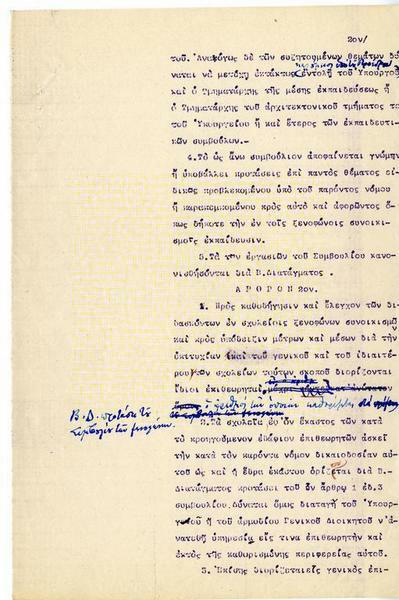 2ον/
του. Αναλόγως δέ τῶν συζητουμένων θεμάτων δύ
ναται νά μετέχῃ ἐκτάκτως ἐντολῇ τοῦ Ὑπουργοῦ
καί ὁ Τμηματάρχης τῆς μέσης ἐκπαιδεύσεως ἤ
ὁ Τμηματάρχης τοῦ ἀρχιτεκτονικοῦ τμήματος το
τοῦ Ὑπουργείου ἤ καί ἕτερος τῶν ἐκπαιδευτι-
κῶν συμβούλων.-
4.Τό ὡς ἄνω συμβούλιον ἀποφαίνεται γνώμην
ἤ ὑποβάλλει προτάσεις ἐπί παντός θέματος εἰ-
δικῶς προβλεπομένου ὑπό τοῦ παρόντος νόμου
ἤ παραπεμπομένου πρός αὐτό καί ἀφορῶντος ὅ-
πως δήποτε τήν ἐν τοῖς ξενοφώνοις συνοικι-
σμοῖς ἐκπαίδευσιν.
5.Τά τῶν ἐργασιῶν τοῦ Συμβουλίου κανο-
νισθήσονται διά Β.Διατάγματος .
ΑΡΘΡΟΝ 2ον.
1. Πρός καθοδήγησιν καί ἔλεγχον τῶν δι-
δασκόντων ἐν σχολείοις ξενοφώνων συνοικισμῶν
καί πρός ὑπόδειξιν μέτρων καί μέσων διά τήν
ἐπιτυχίαν καί τοῦ γενικοῦ καί τοῦ ἰδιαιτέ-
ρου τῶν σχολείων τούτων σκοποῦ διορίζονται
ἴδιοι ἐπιθεωρηταί,
ὁ ἀριθμός τῶν ὁποίων καθορίζεται
Β.Δ. προτάσει τοῦ
2.Τά σχολεῖα ἐφ' ὧν ἕκαστος τῶν κατά
τό προηγούμενον ἐδάφιον ἐπιθεωρητῶν ἀσκεῖ
τήν κατά τόν παρόντα νόμον δικαιοδοσίαν
αὐτοῦ ὡς καί ἡ ἕδρα ἑκάστου ὁρίζεται διά Β.-
Διατάγματος προτάσει τοῦ ἐν ἄρθρῳ 1 ἐδ.3
συμβουλίου.Δύναται ὅμως διαταγῇ τοῦ Ὑπουρ-
γείου ἤ τοῦ ἁρμοδίου Γενικοῦ Διοικητοῦ ν'ἀ-
νατεθῇ ὑπηρεσία εἴς τινα ἐπιθεωρητήν καί
ἐκτός τῆς καθωρισμένης περιφερείας αὐτοῦ.
3. Ἐπίσης διορίζεταιεἷς γενικός ἐπι-